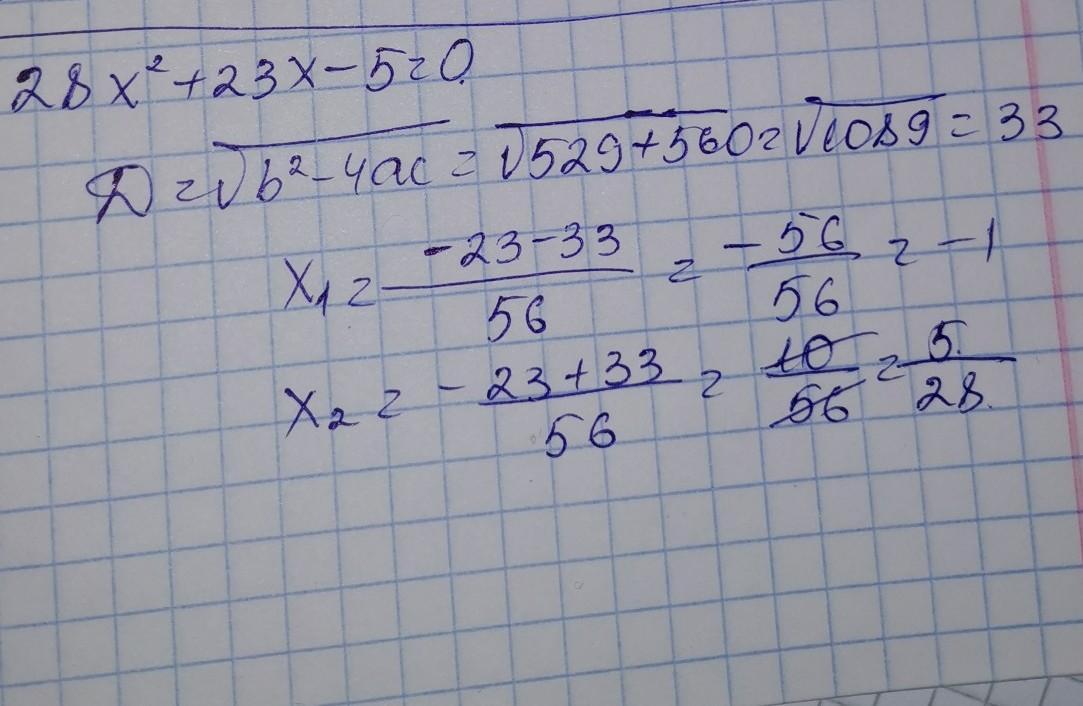 28x² + 23x - 5 = 0
D = √b² - 4ac = √529 + 560 = √1089 = 33
x₁ = -23 - 33 / 56 = -56 / 56 = -1
x₂ = -23 + 33 / 56 = 10 / 56 = 5 / 28